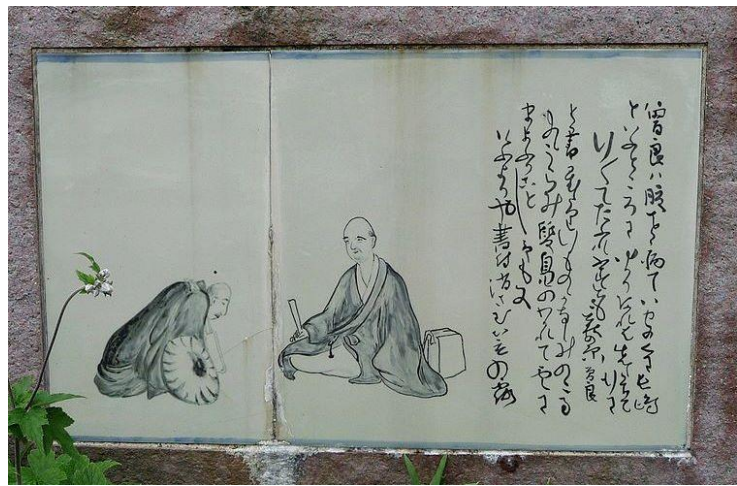 曽良ハ腹を病ていせのくに長嶋
といふところにゆかりあれは先立て行に
行〱てたふれ伏とも萩の原 曽良
と書置たり行ものゝかなしみのこる
ものゝうらみ隻鳧のわかれて雲に
まよふかことし予も又
けふよりや書付消さむかさの露